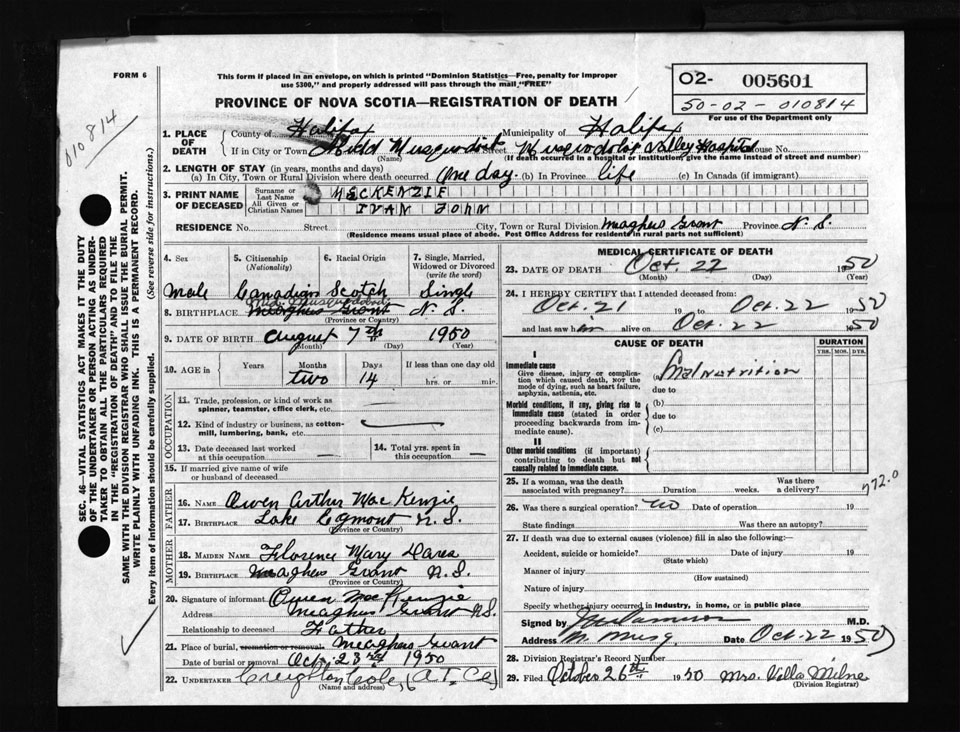 FORM 6
This form if placed in an envelope, on which is printed "Dominion Statistics—Free, penalty for improper
use $300," and properly addressed will pass through the mail "FREE"
02- 005601
50-02-010814
For use of the Department only
PROVINCE OF NOVA SCOTIA—REGISTRATION OF DEATH
010814
1. PLACE OF DEATH
County of Halifax Municipality of Halifax
If in City or Town Musquodoit Street Musquodoit Valley Hospital House No.
(Name) (If death occurred in a hospital or institution, give the name instead of street and number)
2. LENGTH OF STAY (in years, months and days)
(a) In City, Town or Rural Division where death occurred One day (b) In Province life (c) In Canada (if immigrant)
3. PRINT NAME OF DECEASED
Surname or Last Name MACKENZIE
All Given or Christian Names IVAN JOHN
RESIDENCE No. Street City, Town or Rural Division Meaghers Grant Province N.S.
(Residence means usual place of abode. Post Office Address for residents in rural parts not sufficient)
4. Sex 5. Citizenship (Nationality) 6. Racial Origin 7. Single, Married, Widowed or Divorced (write the word)
Male Canadian Scotch Single
Musquodoboit
8. BIRTHPLACE Meaghers Grant N.S.
(Province or Country)
9. DATE OF BIRTH August 7th 1950
(Month) (Day) (Year)
10. AGE in Years Months Days If less than one day
two 14 hrs. or min.
OCCUPATION
11. Trade, profession, or kind of work as
spinner, teamster, office clerk, etc.
12. Kind of industry or business, as cotton-
mill, lumbering, bank, etc.
13. Date deceased last worked at this occupation 14. Total yrs. spent in this occupation
15. If married give name of wife
or husband of deceased
FATHER
16. NAME Owen Arther MacKenzie
17. BIRTHPLACE Lake Egmont N.S.
(Province or Country)
MOTHER
18. MAIDEN NAME Florence Mary Dares
19. BIRTHPLACE Meaghers Grant N.S.
(Province or Country)
20. Signature of informant Owen MacKenzie
Address Meaghers Grant N.S.
Relationship to deceased Father
21. Place of burial, cremation or removal Meaghers Grant
Date of burial or removal Oct 23rd 1950
22. UNDERTAKER Creighton Cole,
(Name and address)
MEDICAL CERTIFICATE OF DEATH
23. DATE OF DEATH Oct. 22 1950
(Month) (Day)
24. I HEREBY CERTIFY that I attended deceased from:
Oct. 21 19 to Oct. 22 1950
and last saw him alive on Oct 22 1950
CAUSE OF DEATH DURATION
YRS. MOS. DYS.
I
Immediate cause
Give disease, injury or compli-
cation which caused death, NOT the
mode of dying, such as heart failure,
asphyxia, asthenia, etc.
(a) Malnutrition
due to
Morbid conditions, if any, giving rise to
immediate cause (stated in order
proceeding backwards from im-
mediate cause).
(b)
due to
(c)
II
Other morbid conditions (if important)
contributing to death but not
causally related to immediate cause.
772.0
25. If a woman, was the death
associated with pregnancy? Duration weeks. Was there a delivery?
26. Was there a surgical operation? No Date of operation 19
State findings Was there an autopsy?
27. If death was due to external causes (violence) fill in also the following:—
Accident, suicide or homicide? Date of injury 19
(State which)
Manner of injury
(How sustained)
Nature of injury
Specify whether injury occurred in industry, in home, or in public place
Signed by M.D.
Address M. Musq Date Oct. 22 1950
28. Division Registrar's Record Number
29. Filed October 26th 1950 Mrs. Villa Milne
(Division Registrar)
SEC. 46—VITAL STATISTICS ACT MAKES IT THE DUTY
OF THE UNDERTAKER OR PERSON ACTING AS UNDER-
TAKER TO OBTAIN ALL THE PARTICULARS REQUIRED
IN THE "REGISTRATION OF DEATH" AND TO FILE THE
SAME WITH THE DIVISION REGISTRAR WHO SHALL ISSUE THE BURIAL PERMIT.
WRITE PLAINLY WITH UNFADING INK. THIS IS A PERMANENT RECORD.
Every item of information should be carefully supplied. (See reverse side for instructions.)